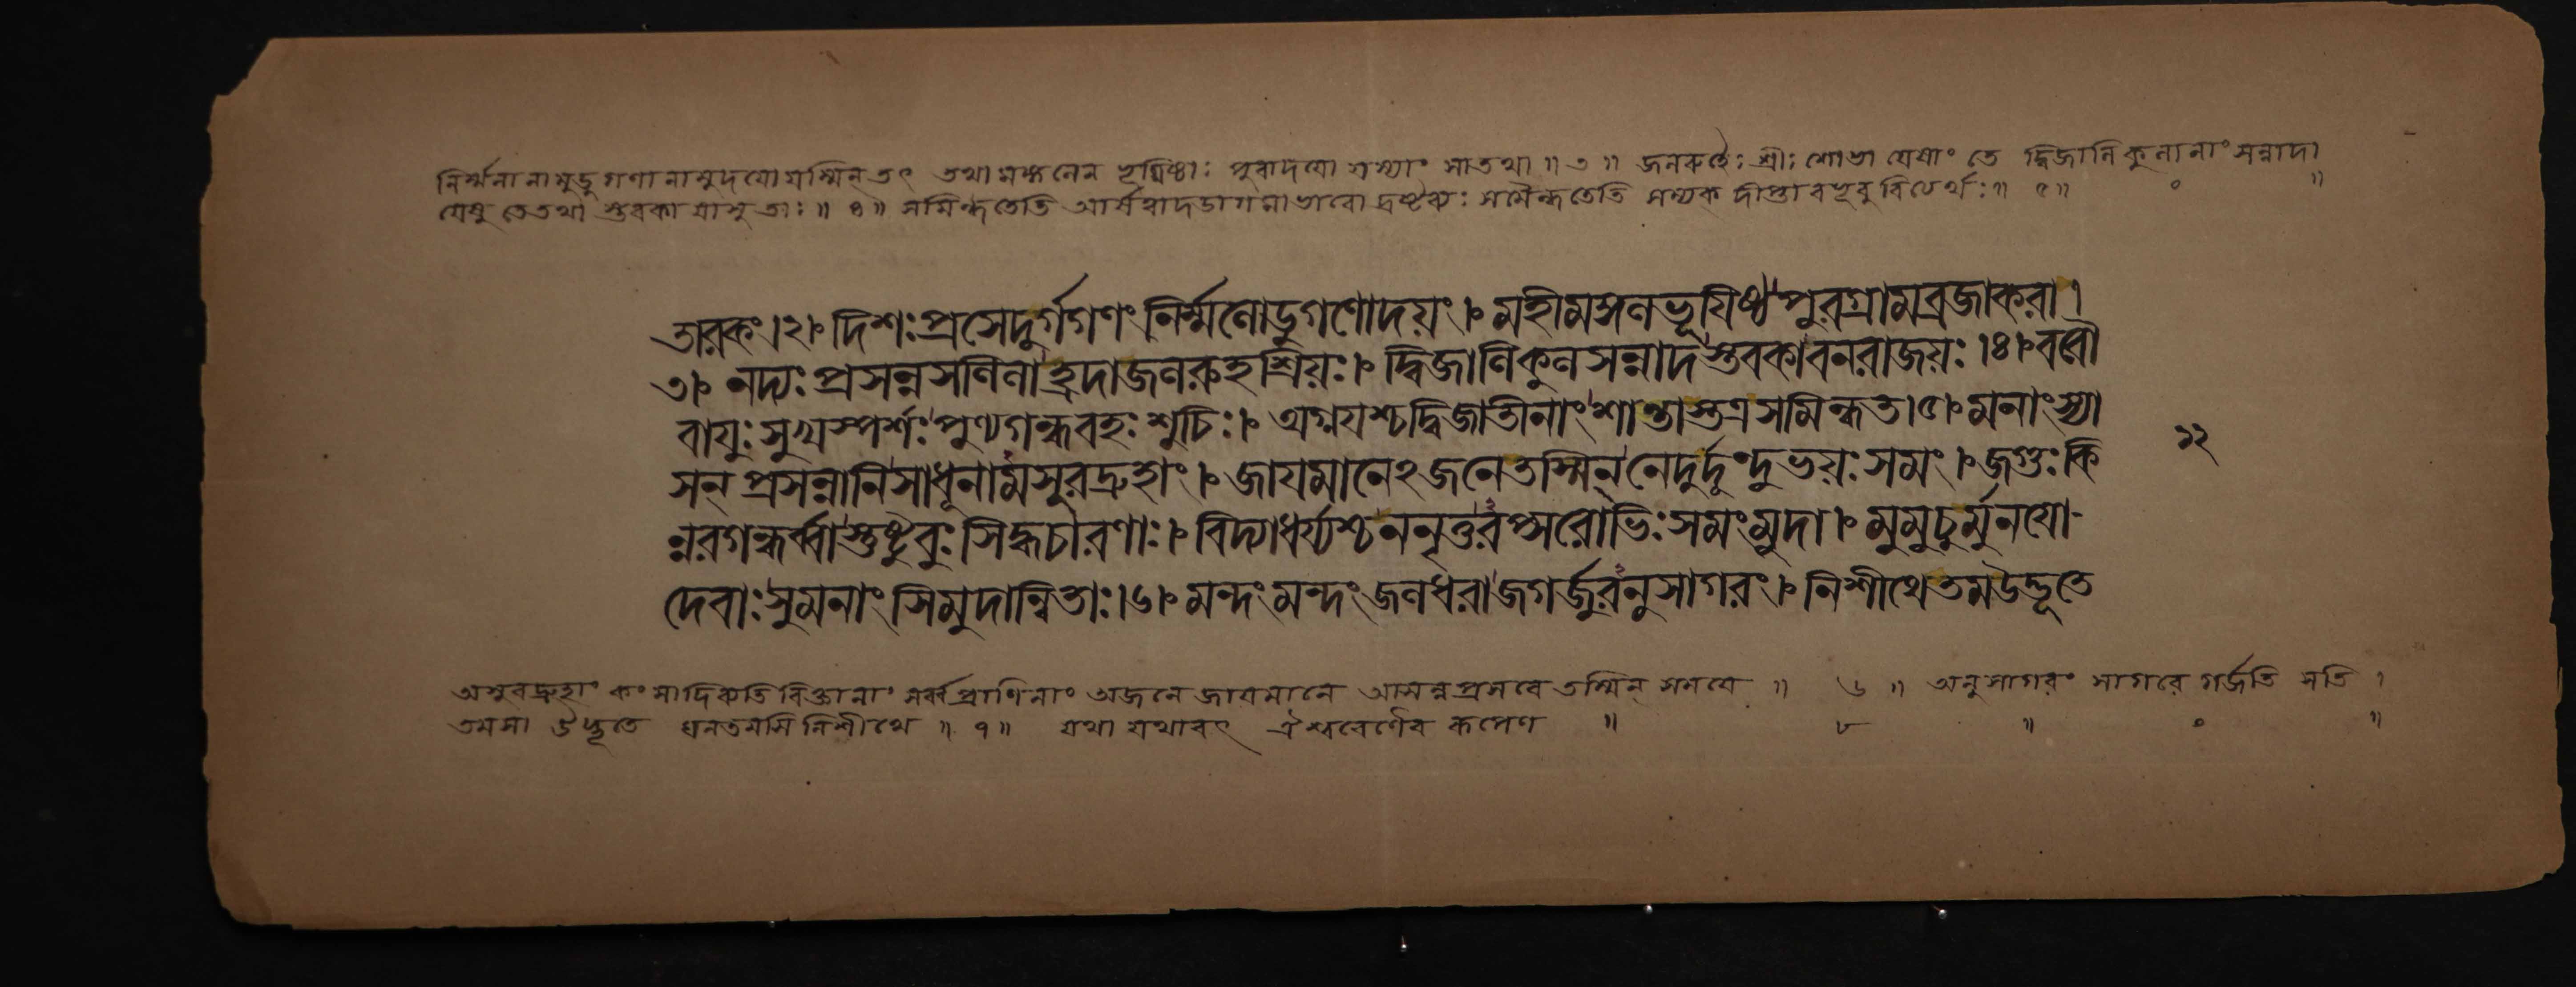 নির্ম্মলানামুডুগণানামুদযোযস্মিন্ তৎ তথামঙ্গলেন ভূযিষ্ঠাঃ পুরাদযো যস্যাং সাতথা॥৩॥ জলরুহৈঃ শ্রীঃ শোভা যেষাং তে দ্বিজালিকুলানাং সন্নাদা
যেষু তেতথা স্তবকা যাসু তাঃ॥৪॥ সমিন্ধতেতি আর্ষত্বাদডাগমাভাবো দ্রষ্টব্যঃ সমৈন্ধতেতি সম্যক্ দীপ্তাবভূবুরিত্যর্থঃ॥৫॥ ॰ ॥
তারকং।২।৹ দিশঃপ্রসেদুর্গগণং নির্ম্মলোডুগণোদয়ং।৹ মহীমঙ্গলভূযিষ্ঠপুরগ্রামব্রজাকরা।
৩।৹ নদ্যঃ প্রসন্নসলিলা হ্রদাজলরুহশ্রিয়ঃ।৹ দ্বিজালিকুলসন্নাদস্তবকাবনরাজয়ঃ।৪।৹ ববৌ
বাযুঃ সুখস্পর্শঃ পুণ্যগন্ধবহঃ শুচিঃ।৹ অগ্নযশ্চদ্বিজাতীনাং শান্তাস্তত্রসমিন্ধত।৫।৹ মনাংস্যা
সন্ প্রসন্নানিসাধূনামসুরদ্রুহাং।৹ জাযমানেঽজনেতস্মিন্নেদুর্দুংদুভয়ঃসমং।৹ জগুঃকি
ন্নরগন্ধর্ব্বাস্তুষ্টুবুঃ সিদ্ধচারণাঃ।৹ বিদ্যাধর্য্যশ্চননৃতুরপ্সরোভিঃসমংমুদা।৹ মুমুচুর্মুনযো-
দেবাঃসুমনাংসিমুদান্বিতাঃ।৬।৹ মন্দংমন্দং জলধরাজগর্জুরনুসাগরং।৹ নিশীথেতমউদ্ভূতে
১২
অসুরদ্রুহাং কংসাদিব্যতিরিক্তানাং সর্ব্বপ্রাণিনাং অজনে জাযমানে আসন্নপ্রসবে তস্মিন্ সমযে॥ ৬॥ অনুসাগরং সাগরে গর্জতি সতি।
তমসা উদ্ভূতে ঘনতমসি নিশীথে॥৭॥ যথা যথাবৎ ঐশ্বরেণৈব রূপেণ ॥ ৮ ॥ ॰ ॥